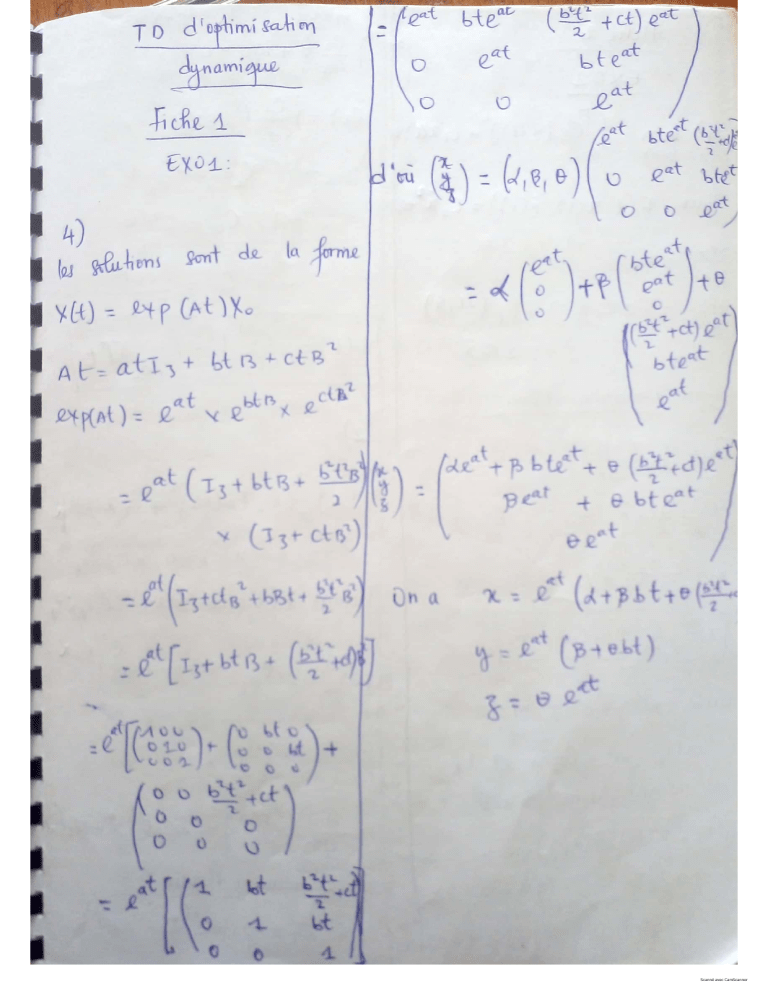 TD d'optimisation
dynamique
Fiche 1
EXO1:
4)
les solutions sont de la forme
X(t) = exp (At) X₀
At = atI₃ + btB + ctB²
exp(At) = e^{at} × e^{btB} × e^{ctB²}
= e^{at} (I₃ + btB + b²t²B²/2)
× (I₃ + ctB²)
= e^{at} (I₃ + ctB² + bBt + b²t²/2 B²)
= e^{at} [I₃ + btB + (b²t²/2 + ct)B²]
= e^{at} [(1 0 0
0 1 0
0 0 1) + (0 bt 0
0 0 bt
0 0 0) +
(0 0 b²t²/2 + ct
0 0 0
0 0 0)
= e^{at} [(1 bt b²t²/2 + ct
0 1 bt
0 0 1)]
= (e^{at} bte^{at} (b²t²/2 + ct) e^{at}
0 e^{at} bte^{at}
0 0 e^{at})
d'où (x
y
z) = (α, β, θ) (e^{at} bte^{at} (b²t²/2 + ct)e
0 e^{at} bte^{at}
0 0 e^{at})
= α (e^{at}
0
0) + β (bte^{at}
e^{at}
0) + θ
((b²t²/2 + ct) e^{at}
bte^{at}
e^{at})
(x
y
z) = (αe^{at} + β bte^{at} + θ (b²t²/2 + ct) e^{at}
βe^{at} + θ bte^{at}
θe^{at})
On a x = e^{at} (α + βbt + θ(b²t²/2 +
y = e^{at} (β + θbt)
z = θ e^{at}